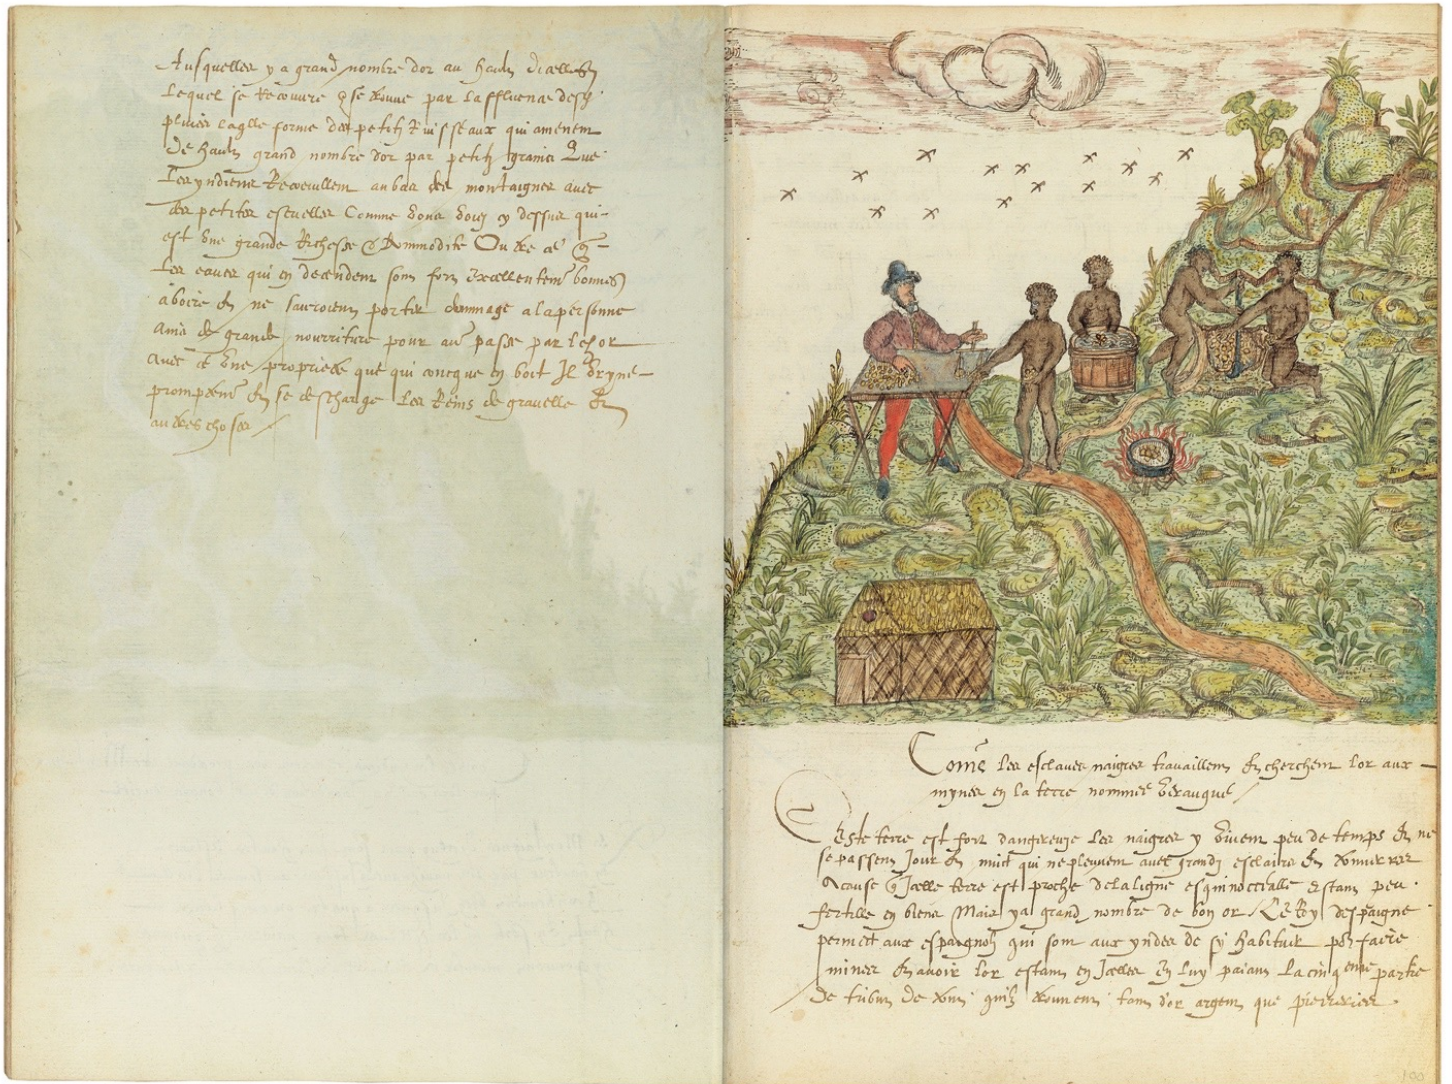 Ausquelles y a grand nombre dor au hault dicelles
Lequel se descouvre & se trouve par laffluence desd
pluies laqlle forme des petitz Ruisseaux qui amenent
de hault grand nombre dor par petitz grains Que
Les yndiens Recoeuillent au bas des montaignes avec
des petites escuelles Comme vous voiez cy dessus qui
est une grande Richesse & Commodite Oultre ce q
Les eaues qui en decendent sont fort Excellentemt bonnes
a boire Et ne scauroient porter dommage a la personne
Ains de grande nourriture pour ce passe par lesor
avec ce une propriete que qui conque en boit Il Uryne
promptemt Et se descharge Les Reins de gravelle Et
aultres choses
Come Les esclaves naigres travaillent Et cherchent lor aux
mynes en la terre nommee Veraugue
Ceste terre est fort dangereuse Les naigres y vivent peu de temps Et ne
se passent Jour Et nuict qui ne pleuvent avec grandz esclairs Et tonnerres
A cause q Icelle terre est proche de la ligne esquinoctialle Estant peu
fertille en biens Mais ya grand nombre de bon or / Le Roy despaigne
permect aux espaignolz qui sont aux yndes de sy habituer por faire
miner Et avoir lor estant en Icelles En luy paiant La cinqeme partie
de tribut de tout quilz trouvent tant dor argent que pierreries
100